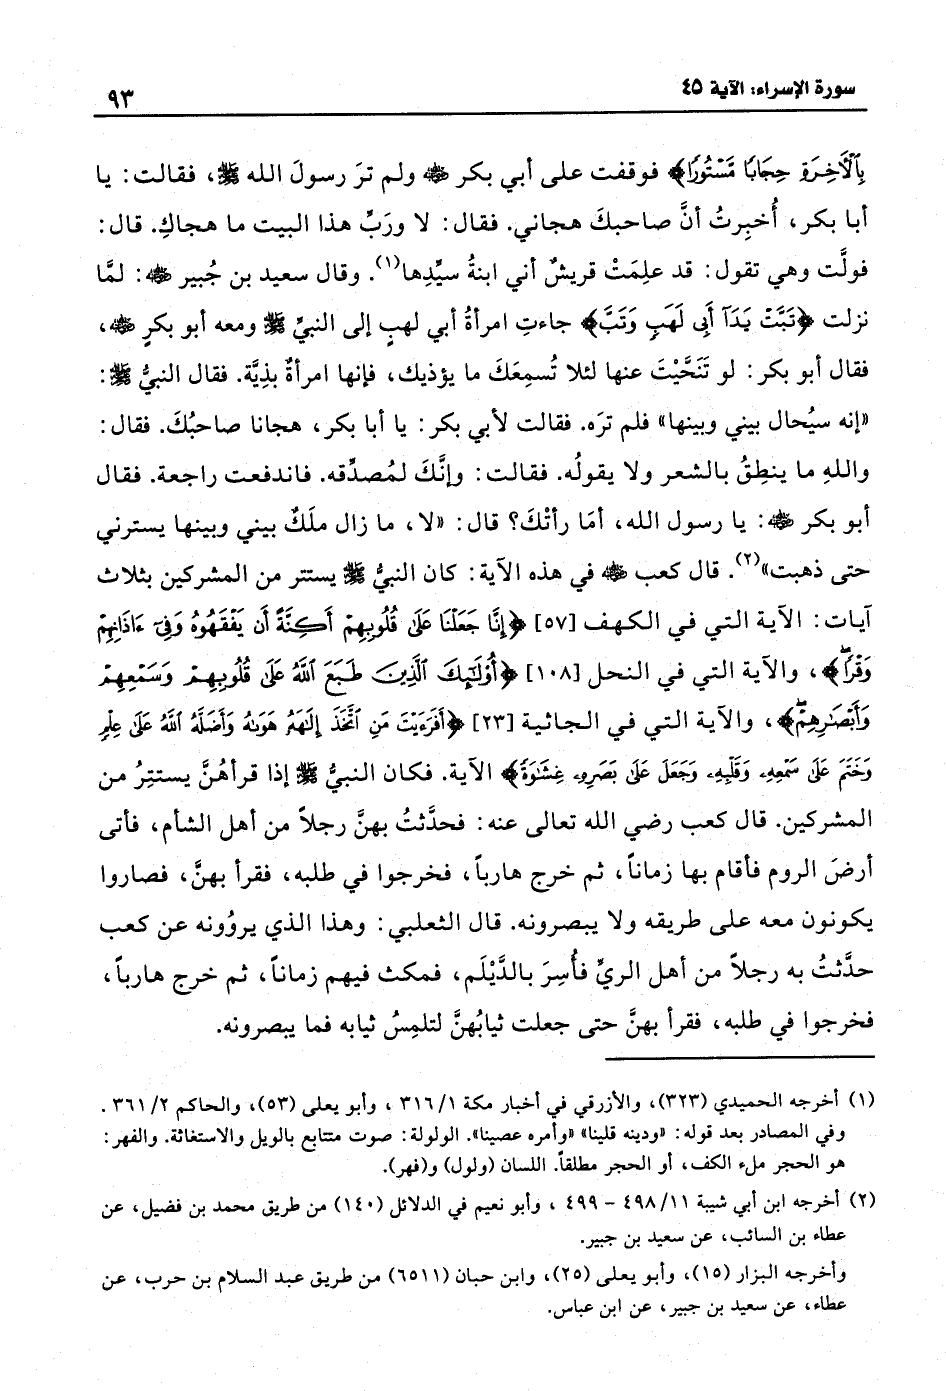 سورة الإسراء: الآية ٤٥
٩٣
بِٱلْأَخِرَةِ حِجَابًا مَّسْتُورًا﴾ فوقفت على أبي بكر رضي الله عنه ولم ترَ رسولَ الله ﷺ، فقالت: يا
أبا بكر، أُخبِرتُ أنَّ صاحبكَ هجاني. فقال: لا وربِّ هذا البيت ما هجاكِ. قال:
فولَّت وهي تقول: قد علِمَتْ قريشٌ أني ابنةُ سيِّدِها(١). وقال سعيد بن جُبير رضي الله عنه: لمَّا
نزلت ﴿تَبَّتْ يَدَآ أَبِى لَهَبٍ وَتَبَّ﴾ جاءتِ امرأةُ أبي لهبٍ إلى النبيِّ ﷺ ومعه أبو بكرٍ رضي الله عنه،
فقال أبو بكر: لو تَنَحَّيْتَ عنها لئلا تُسمِعَكَ ما يؤذيك، فإنها امرأةٌ بذِيَّة. فقال النبيُّ ﷺ:
«إنه سيُحال بيني وبينها» فلم ترَه. فقالت لأبي بكر: يا أبا بكر، هجانا صاحبُكَ. فقال:
واللهِ ما ينطِقُ بالشعر ولا يقولُه. فقالت: وإنَّكَ لمُصدِّقه. فاندفعت راجعة. فقال
أبو بكر رضي الله عنه: يا رسول الله، أمَا رأتْكَ؟ قال: «لا، ما زال ملَكٌ بيني وبينها يسترني
حتى ذهبت»(٢). قال كعب رضي الله عنه في هذه الآية: كان النبيُّ ﷺ يستتر من المشركين بثلاث
آيات: الآية التي في الكهف [٥٧] ﴿إِنَّا جَعَلْنَا عَلَىٰ قُلُوبِهِمْ أَكِنَّةً أَن يَفْقَهُوهُ وَفِىٓ ءَاذَانِهِمْ
وَقْرًا﴾، والآية التي في النحل [١٠٨] ﴿أُوْلَٰٓئِكَ ٱلَّذِينَ طَبَعَ ٱللَّهُ عَلَىٰ قُلُوبِهِمْ وَسَمْعِهِمْ
وَأَبْصَٰرِهِمْ﴾، والآية التي في الجاثية [٢٣] ﴿أَفَرَءَيْتَ مَنِ ٱتَّخَذَ إِلَٰهَهُۥ هَوَىٰهُ وَأَضَلَّهُ ٱللَّهُ عَلَىٰ عِلْمٍ
وَخَتَمَ عَلَىٰ سَمْعِهِۦ وَقَلْبِهِۦ وَجَعَلَ عَلَىٰ بَصَرِهِۦ غِشَٰوَةً﴾ الآية. فكان النبيُّ ﷺ إذا قرأهُنَّ يستتِرُ من
المشركين. قال كعب رضي الله تعالى عنه: فحدَّثتُ بهنَّ رجلاً من أهل الشأم، فأتى
أرضَ الروم فأقام بها زماناً، ثم خرج هارباً، فخرجوا في طلبه، فقرأ بهنَّ، فصاروا
يكونون معه على طريقه ولا يبصرونه. قال الثعلبي: وهذا الذي يروُونه عن كعب
حدَّثتُ به رجلاً من أهل الريِّ فأُسِرَ بالدَّيْلَم، فمكث فيهم زماناً، ثم خرج هارباً،
فخرجوا في طلبه، فقرأ بهنَّ حتى جعلت ثيابُهنَّ لتلمِسُ ثيابه فما يبصرونه.
(١) أخرجه الحميدي (٣٢٣)، والأزرقي في أخبار مكة ٣١٦/١ ، وأبو يعلى (٥٣)، والحاكم ٣٦١/٢ .
وفي المصادر بعد قوله: «ودينه قلينا» «وأمره عصينا». الولولة: صوت متتابع بالويل والاستغاثة. والفهر:
هو الحجر ملء الكف، أو الحجر مطلقاً. اللسان (ولول) و(فهر).
(٢) أخرجه ابن أبي شيبة ٤٩٨/١١ - ٤٩٩ ، وأبو نعيم في الدلائل (١٤٠) من طريق محمد بن فضيل، عن
عطاء بن السائب، عن سعيد بن جبير.
وأخرجه البزار (١٥)، وأبو يعلى (٢٥)، وابن حبان (٦٥١١) من طريق عبد السلام بن حرب، عن
عطاء، عن سعيد بن جبير، عن ابن عباس.